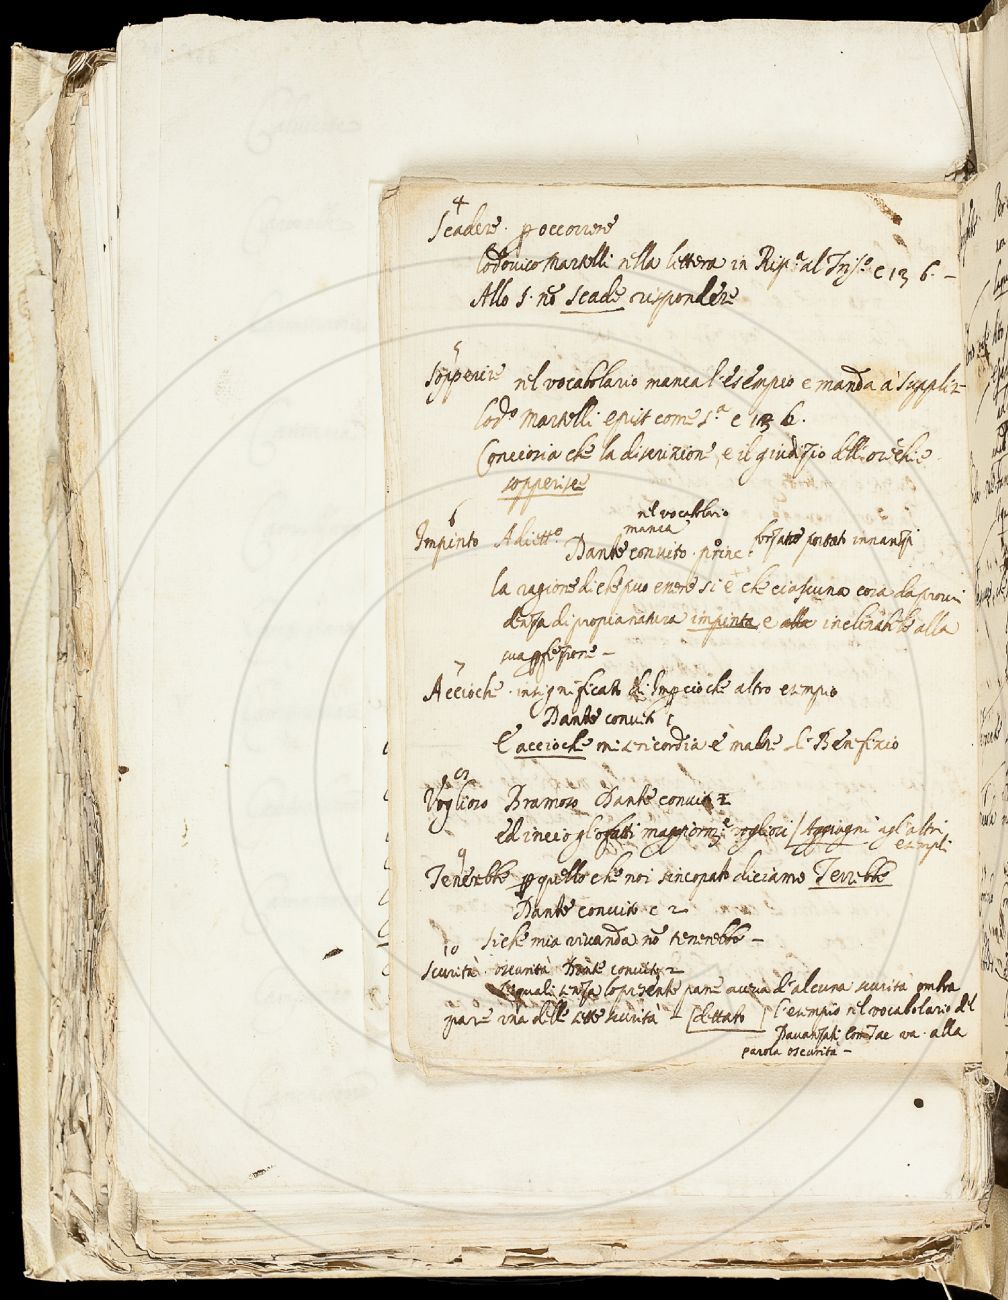 4
Scadere. p occorrere
Lodovico Martelli nella lettera in Risp.ᵃ al Tris.º c 13 6. –
Allo s. nō scade rispondere
5
Sopperire nel vocabolario manca l'esempio e manda à supplir
Lodº Martelli epist come sª c 13 6.
Conciosia che la discrizione, e il giudizio dell orechie
sopperisce
6 nel vocabolario
Impinto Adiettº manca forzato portato innanzi
Dante convito. princ:
la ragione di che puo essere si è che ciascuna cosa da provi
denza di propia natura impinta e alla inclinabile alla
sua pfezione –
7
Accioche. in significato di Impcioche altro esempio
Dante convito 1
E accioche misericordia é madre di Benefizio
8
Voglioso Bramoso Dante convito 2
ed in ciò gl'ho fatti maggiormᵉ vogliosi / Aggiugni agl'altri
esempli
9
Tenerebbe p quello che noi sincopato diciamo Terrebbe
Dante convito c 2
siche mia vivanda nō tenerebbe –
10
Scurità. oscurità Dante convito 2
li quali senza lo presente pane aveva d'alcuna scurità ombra
pare una delle sette scurità – [dettato] l'esempio nel vocabolario del
Davanzati Corn Tac va alla
parola oscurità –